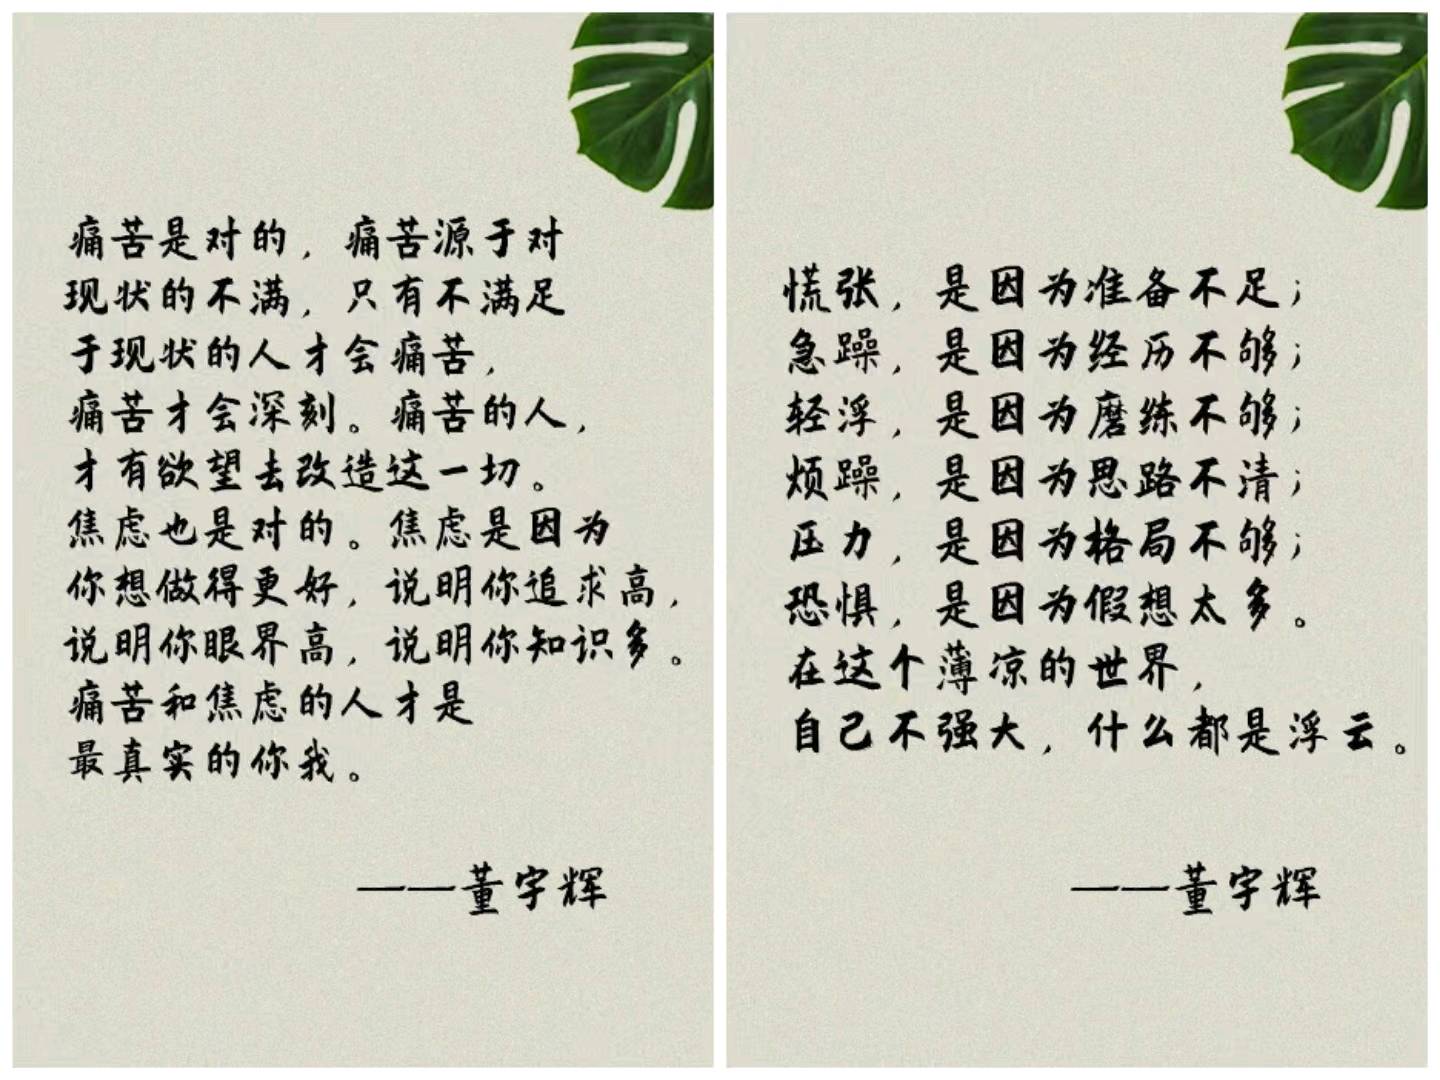 痛苦是对的，痛苦源于对
现状的不满，只有不满足
于现状的人才会痛苦，
痛苦才会深刻。痛苦的人，
才有欲望去改造这一切。
焦虑也是对的。焦虑是因为
你想做得更好，说明你追求高，
说明你眼界高，说明你知识多。
痛苦和焦虑的人才是
最真实的你我。
——董宇辉
慌张，是因为准备不足；
急躁，是因为经历不够；
轻浮，是因为磨练不够；
烦躁，是因为思路不清；
压力，是因为格局不够；
恐惧，是因为假想太多。
在这个薄凉的世界，
自己不强大，什么都是浮云。
——董宇辉